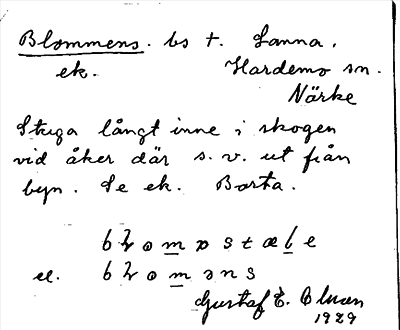 Blommens. bs t. Sanna.
ek. Hardemo sn.
Närke
Stuga långt inne i skogen
vid åker där s. v. ut från
byn. Se ek. Borta.
el.
Gustaf E.
1929